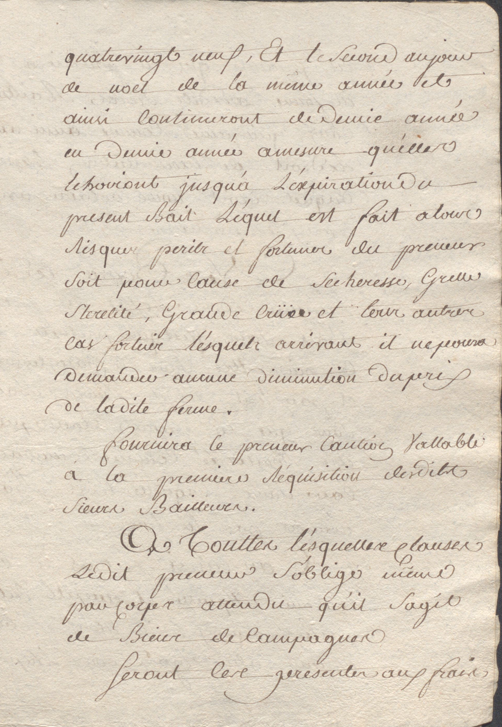 quatrevingt neuf, Et le second au jour
de noel de la meme année et
ainsi continueront de demie année
en demie année amesure quelles
Echoiront jusqua L'expiration du
present Bail Lequel est fait a tous
Risques perils et fortunes du preneur
soit pour Cause de Secheresse, Grelle
Sterelité, Grande Crüe et tous autres
Cas fortuis lesquels arrivant il ne poura
demander aucune diminution du prix
de ladite ferme.
fournira le preneur Caution Vallable
à la premiere Requisition desdits
Sieurs Bailleurs.
A Touttes lesquelles Clauses
Ledit preneur s'oblige même
par Corps attendu qu'il s'agit
de Biens de Campagnes
Seront Ces presentes aux frais